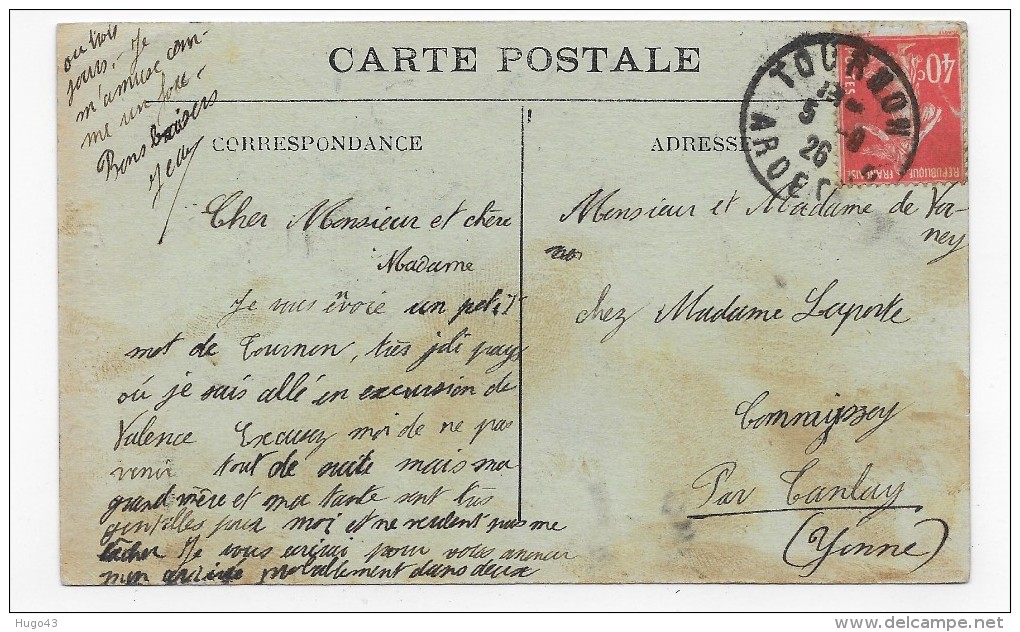 CARTE POSTALE
CORRESPONDANCE
ADRESSE
TOURNON
ARDECHE
5 - 8
26
40c
POSTES
REPUBLIQUE FRANCAISE
Cher Monsieur et chere
Madame
Je vous envoie un petit
mot de Tournon, très joli pays
où je suis allé en excursion de
Valence Excusez moi de ne pas
venir tout de suite mais ma
grand mère et ma tante sont très
gentilles pour moi et ne veulent pas me
lâcher Je vous écrirai pour vous anoncer
mon arrivée probablement dans deux
ou trois
jours. Je
m'amuse com-
me un fou.
Bons baisers
Monsieur et Madame de Var-
ney
chez Madame Laporte
Commissey
Par Tanlay
(Yonne)
Hugo43
© www.delcampe.net